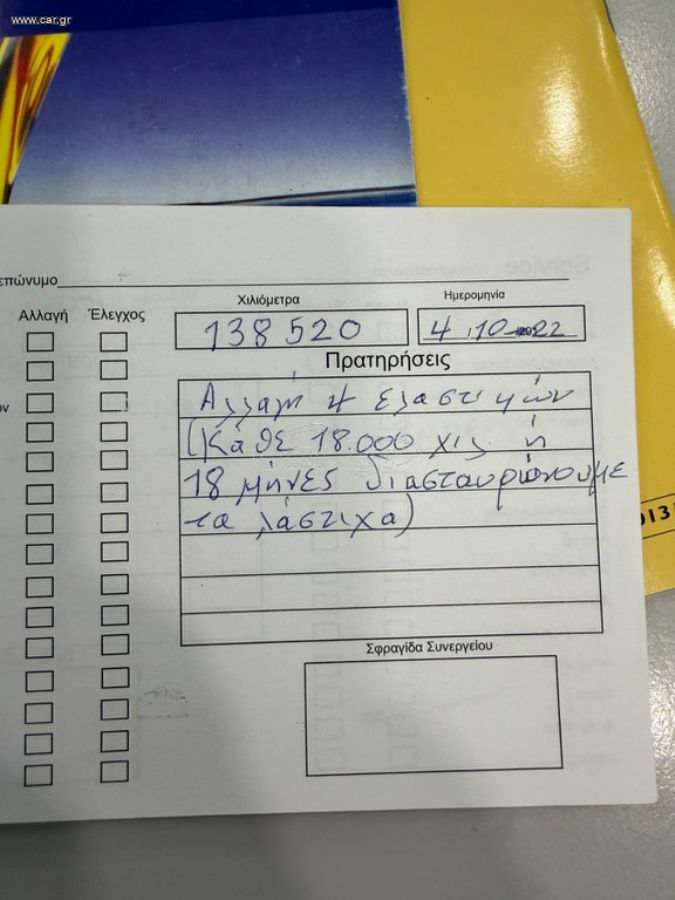 www.car.gr
επώνυμο
Χιλιόμετρα
Ημερομηνία
Αλλαγή Έλεγχος
138520
4.10.2022
Πρατηρήσεις
Αλλαγή 4 ελαστικών
(Κάθε 18.000 χιλ ή
18 μήνες διασταυρώνουμε
τα λάστιχα)
Σφραγίδα Συνεργείου